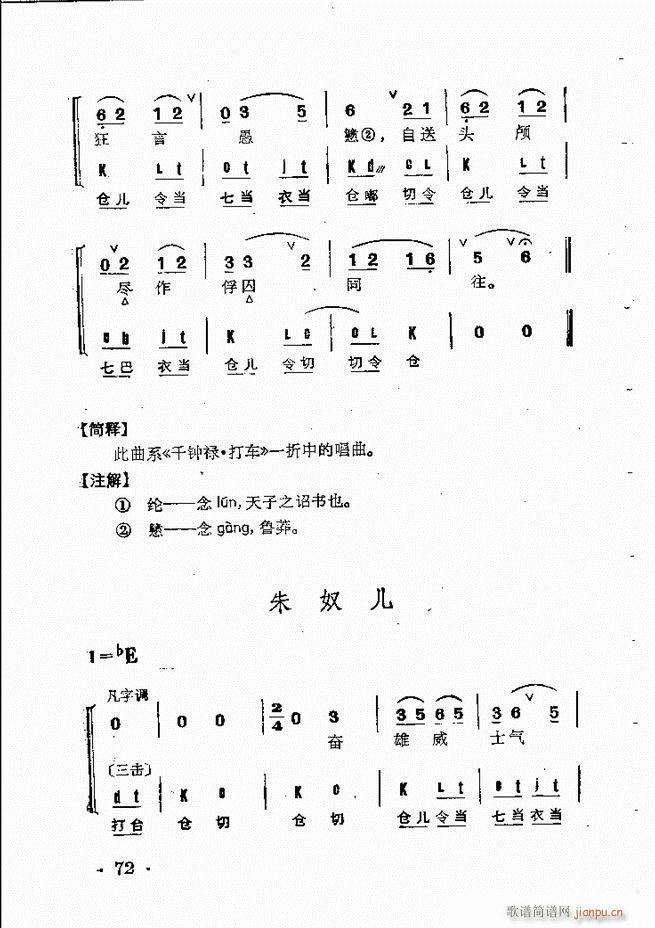 6 2 1 2 | 0 3 5 | 6 2 1 | 6 2 1 2
狂 言 愚 戆②, 自 送 头 颅
K L t | C t j t | K d/// C L | K L t
仓儿 令当 七当 衣当 仓嘟 切令 仓儿 令当
0 2 1 2 | 3 3 2 | 1 2 1 6 | 5 6
尽 作 俘囚 同 往。
C b j t | K L C | C L K | 0 0
七巴 衣当 仓儿 令切 切令 仓
【简释】
此曲系《千钟禄·打车》一折中的唱曲。
【注解】
① 纶——念 lún, 天子之诏书也。
② 戆——念 gàng, 鲁莽。
朱 奴 儿
1=bE
凡字调
0 | 0 0 | 2/4 0 3 | 3 5 6 5 | 3 6 5
奋 雄 威 士气
〔三击〕
d t | K C | K C | K L t | C t j t
打台 仓 切 仓 切 仓儿 令当 七当 衣当
· 72 ·
歌谱简谱网 jianpu.cn